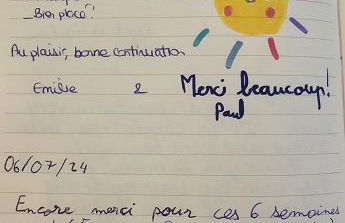 _Bien placé!
Au plaisir, bonne continuation
Emilie 2 Merci beaucoup!
Paul
06/07/24
Encore merci pour ces 6 semaines